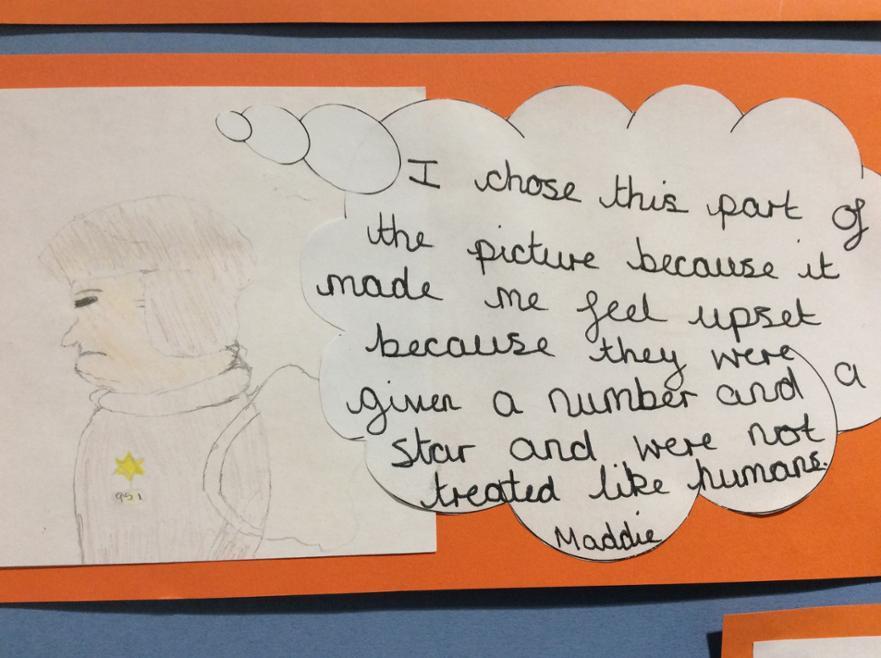 I chose this part of
the picture because it
made me feel upset
because they were
given a number and a
star and were not
treated like humans.
Maddie
951